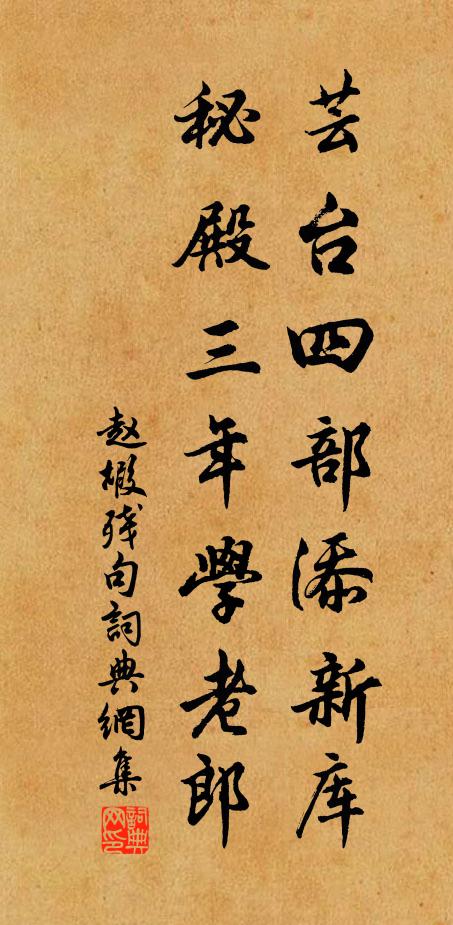 芸台四部添新库
秘殿三年学老郎
赵嘏残句詞典網集
詞典网印